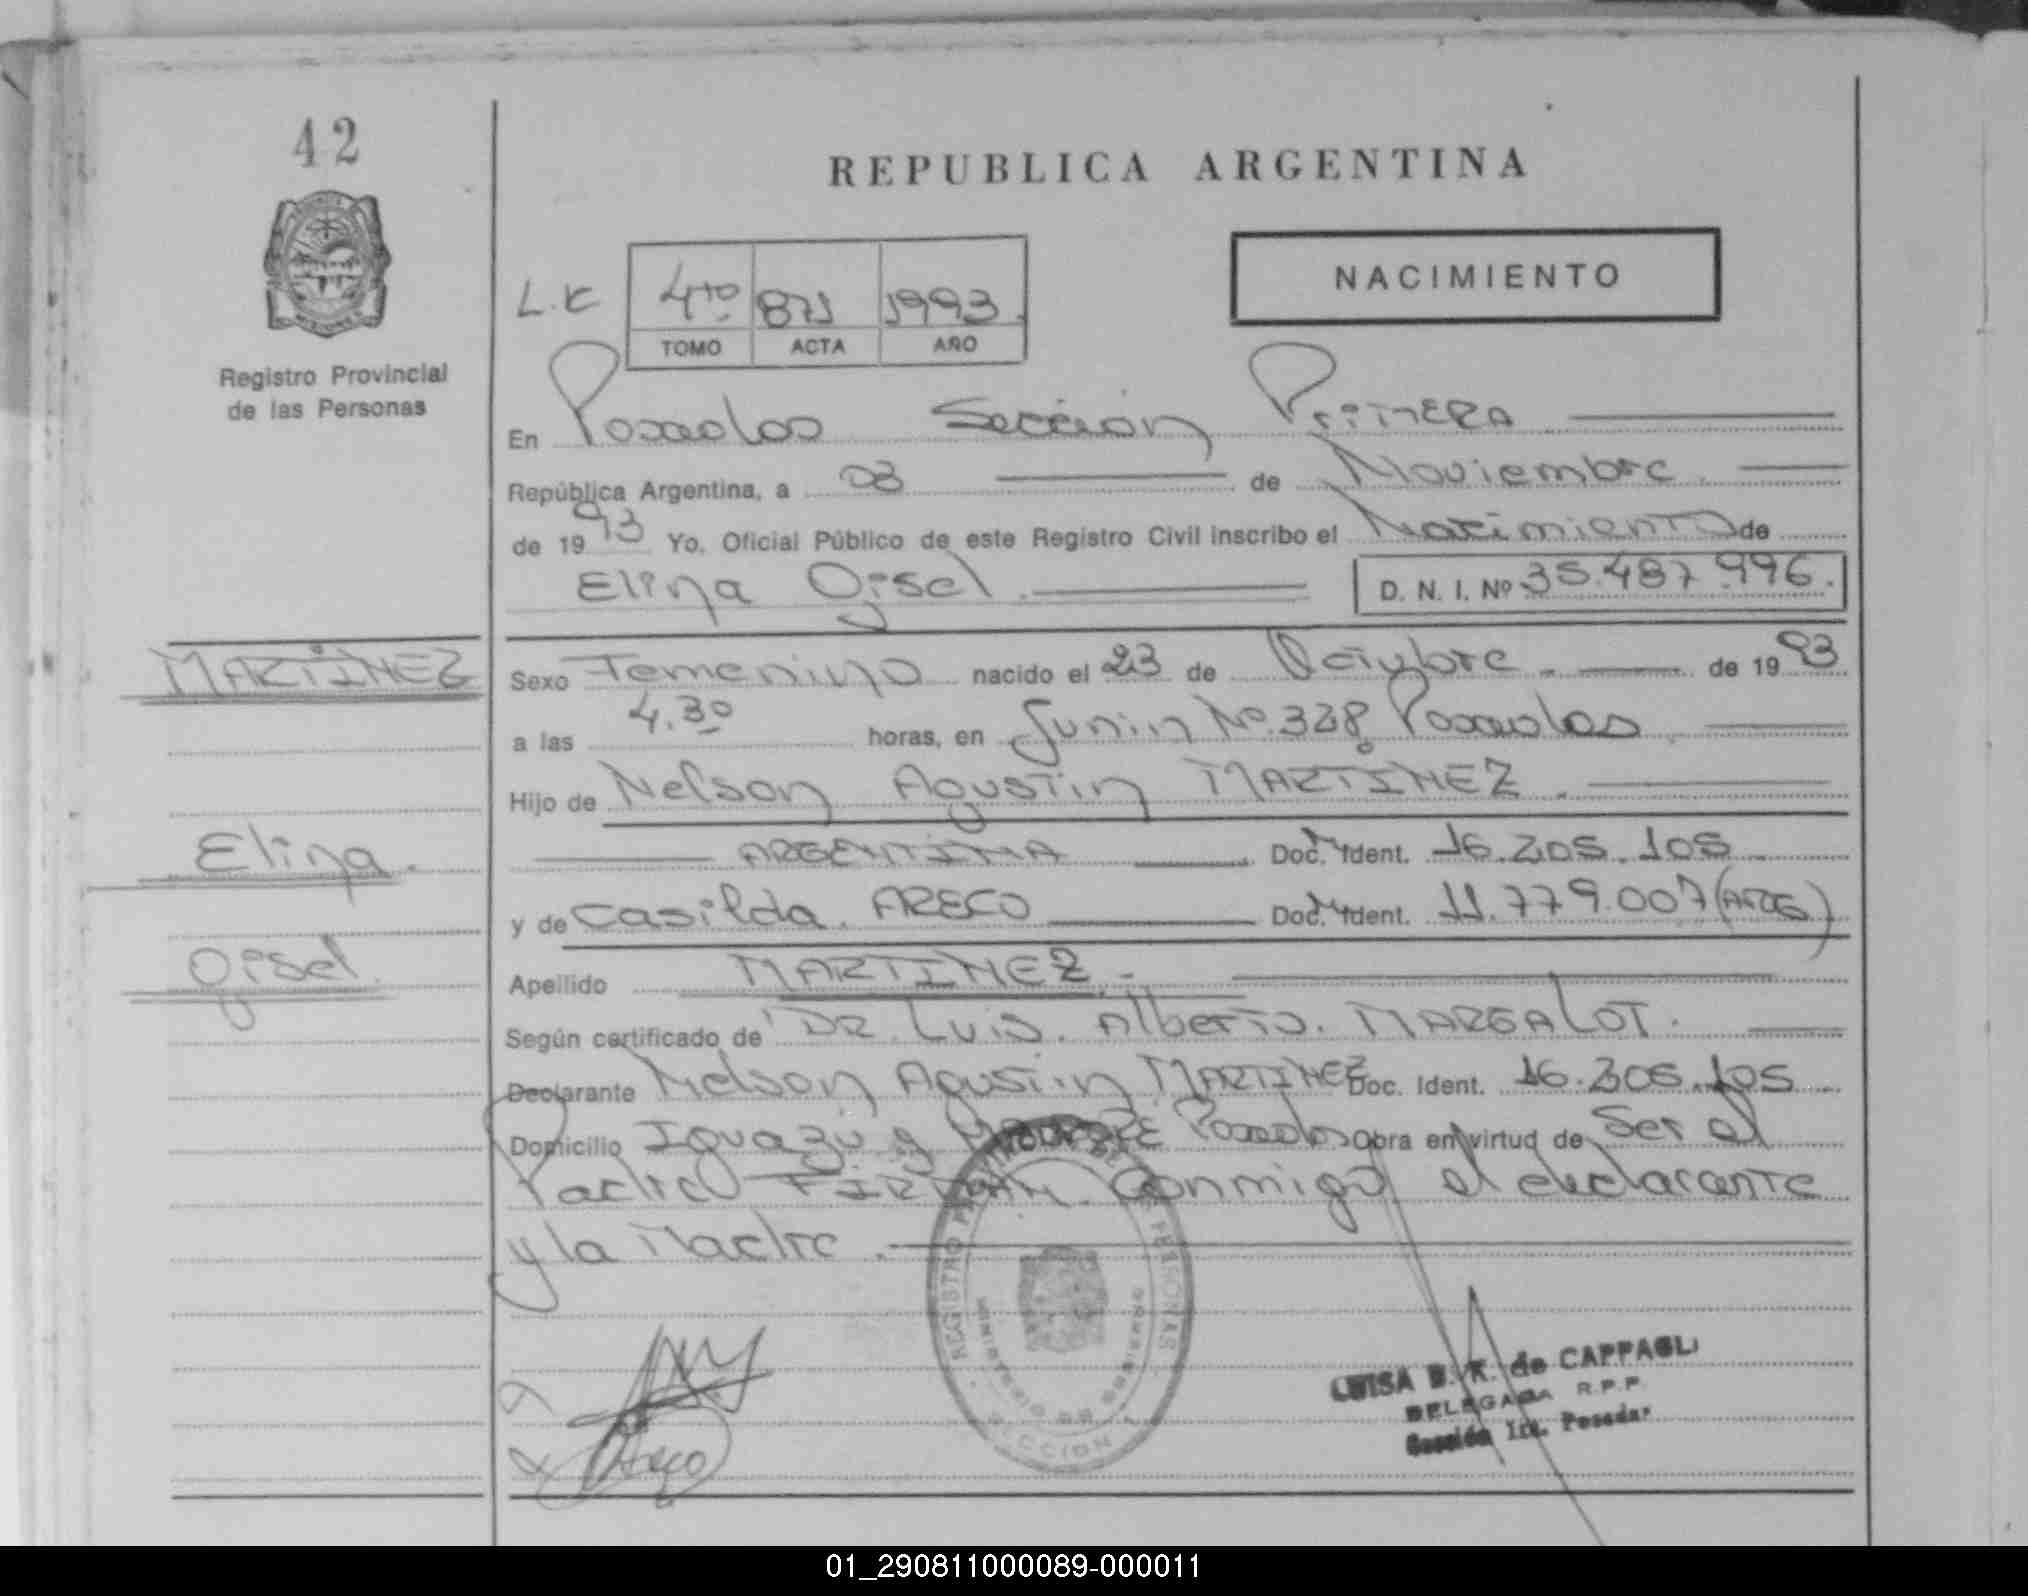 42
REPUBLICA ARGENTINA
NACIMIENTO
4to 871 1993
TOMO ACTA AÑO
Registro Provincial
de las Personas
En Posadas Sección Primera
República Argentina, a 03 de Noviembre
de 1993 Yo, Oficial Público de este Registro Civil inscribo el Nacimiento de
Elina Gisel D. N. I. Nº 35.487.996.
MARTINEZ
Sexo Femenino nacido el 23 de Octubre de 1993
a las 4.30 horas, en Junin Nº 328 Posadas
Hijo de Nelson Agustin MARTINEZ
Elina
ARGENTINA Doc. Ident. 16.205.105
y de Casilda ARECO Doc. Ident. 11.779.007 (ARG)
Gisel
Apellido MARTINEZ.-
Según certificado de DR. Luis Alberto MARGALOT.
Declarante Nelson Agustin MARTINEZ Doc. Ident. 16.205.105
Domicilio Iguazú y Posadas Obra en virtud de Ser el
Padre FIRMAN Conmigo el declarante
y la Madre.
REGISTRO PROVINCIAL DE LAS PERSONAS
MINISTERIO DE GOBIERNO
SECCION 1
LUISA B. K. de CAPPAGLI
DELEGADA R.P.P.
Sección 1ra. Posadas
Areco
01_290811000089-000011